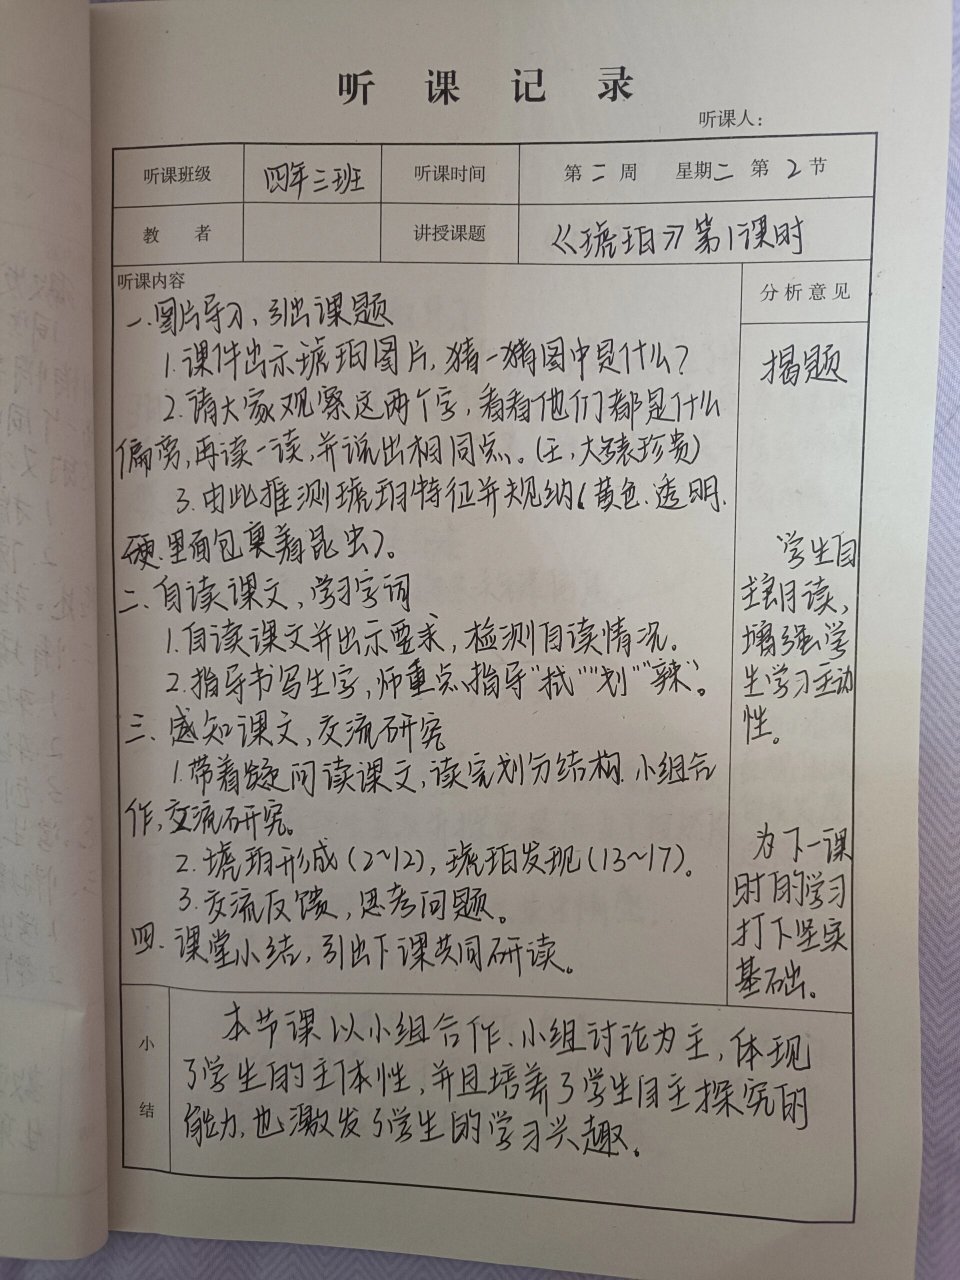 听课记录
听课人：
听课班级 四年三班 听课时间 第二周 星期二 第2节
教者 讲授课题 《琥珀》第1课时
听课内容
一.图片导习、引出课题
1.课件出示琥珀图片,猜一猜图中是什么?
2.请大家观察这两个字,看看他们都是什么
偏旁,再读一读,并说出相同点。(王,大多表珍贵)
3.由此推测琥珀特征并规纳(黄色.透明.
硬.里面包裹着昆虫)。
二、自读课文、学习字词
1.自读课文并出示要求,检测自读情况。
2.指导书写生字,师重点指导"拭""划""辣"。
三、感知课文,交流研究
1.带着疑问读课文,读完划分结构.小组合
作,交流研究。
2.琥珀形成(2~12),琥珀发现(13~17)。
3.交流反馈,思考问题。
四.课堂小结,引出下课共同研读。
分析意见
揭题
学生自
主朗读,
增强学
生学习主动
性。
为下一课
时的学习
打下坚实
基础。
小结
本节课以小组合作.小组讨论为主,体现
了学生的主体性,并且培养了学生自主探究的
能力,也激发了学生的学习兴趣。